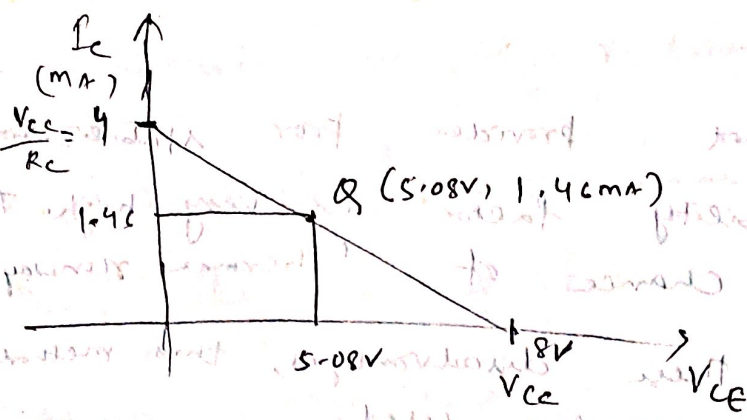 Ic
(mA)
Vcc/Rc = 4
Q (5.08V, 1.46mA)
1.46
5.08V
8V
Vcc
VCE